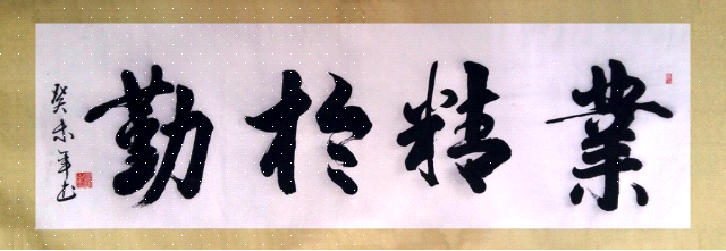 業精於勤
癸未年書